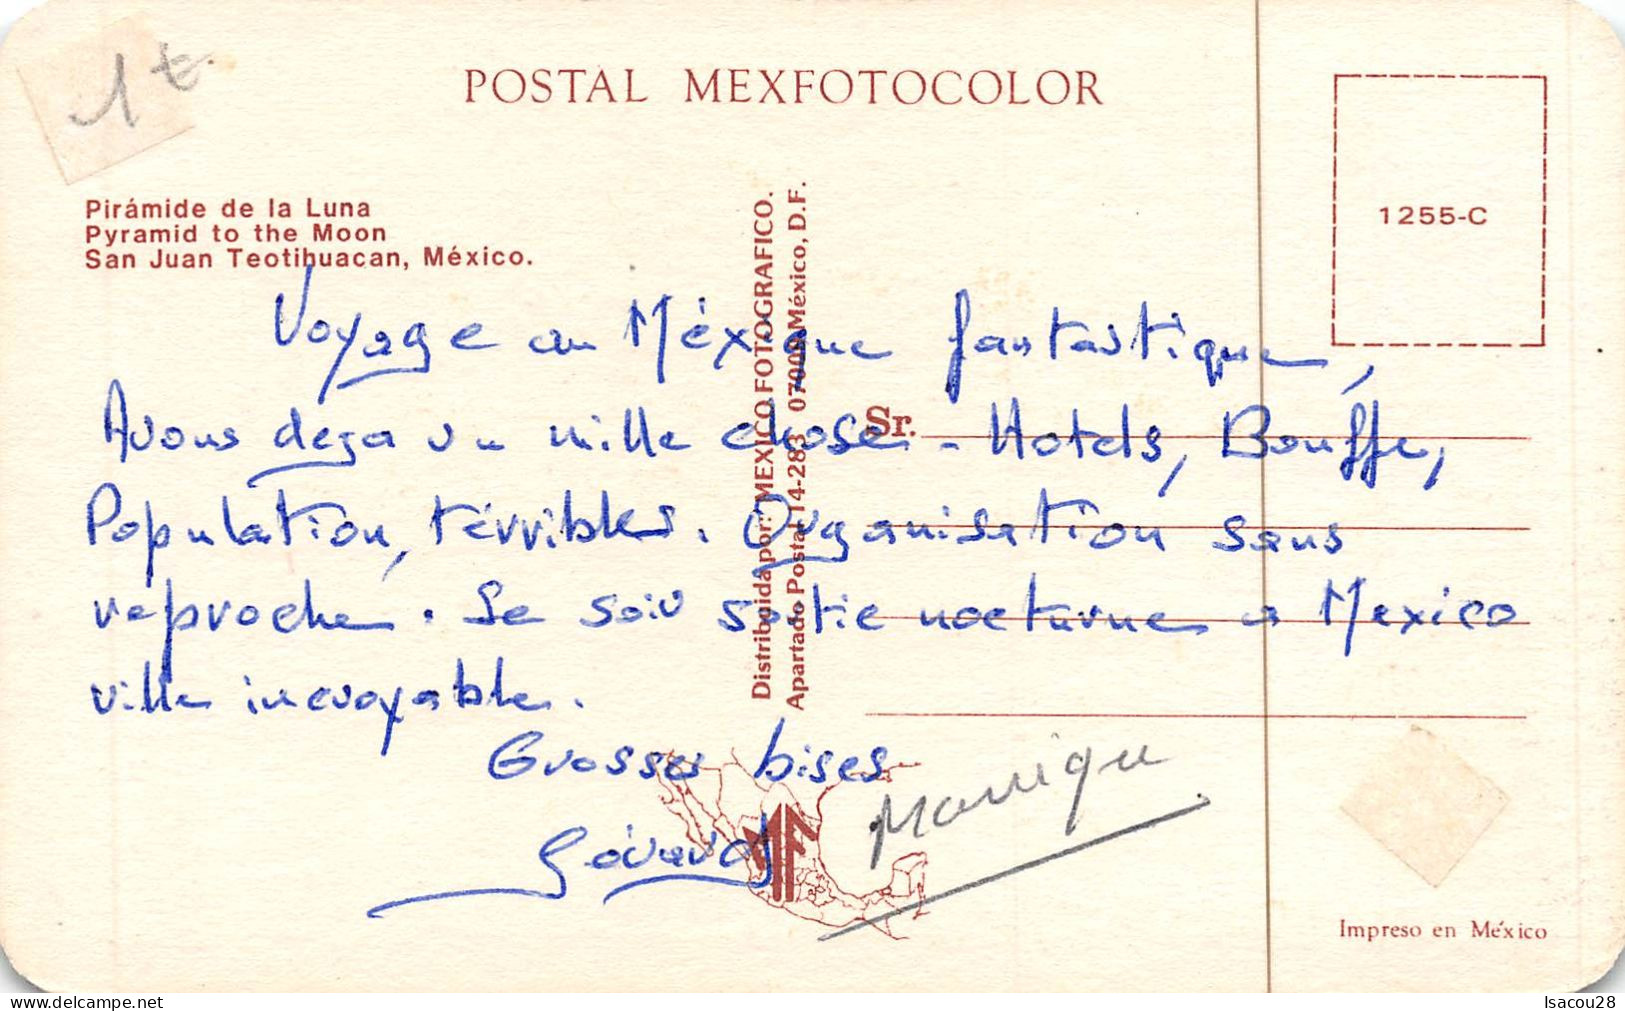 1€
POSTAL MEXFOTOCOLOR
1255-C
Pirámide de la Luna
Pyramid to the Moon
San Juan Teotihuacan, México.
Distribuida por: MEXICO FOTOGRAFICO.
Apartado Postal 14-283 07000 México, D.F.
Sr.
Voyage au Méxique fantastique,
Avons deja vu mille chose - Hotels, Bouffe,
Population, térribles. Organisation sans
reproche. Ce soir sortie nocturne a Mexico
ville incroyable.
Grosses bises
Gérard
MF
Impreso en México
Isacou28